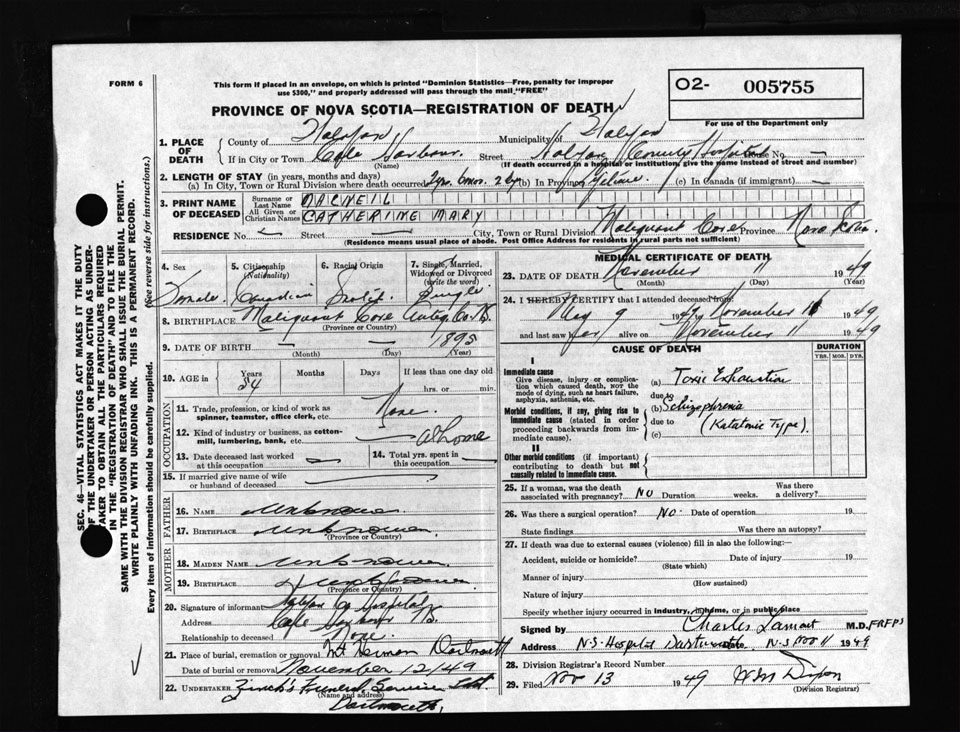 FORM 6
This form if placed in an envelope, on which is printed "Dominion Statistics—Free, penalty for improper
use $300," and properly addressed will pass through the mail "FREE"
O2- 005755
PROVINCE OF NOVA SCOTIA—REGISTRATION OF DEATH
For use of the Department only
1. PLACE OF DEATH
County of Halifax Municipality of Halifax
If in City or Town Cole Harbour. Street Halifax County Hospital House No. —
(Name) (If death occurred in a hospital or institution, give the name instead of street and number)
2. LENGTH OF STAY (in years, months and days)
(a) In City, Town or Rural Division where death occurred 2 yrs 6 mos. 2 (b) In Province lifetime. (c) In Canada (if immigrant) —
3. PRINT NAME OF DECEASED
Surname or Last Name MACNEIL
All Given or Christian Names CATHERINE MARY
RESIDENCE No. — Street — City, Town or Rural Division Malignant Cove Province Nova Scotia.
(Residence means usual place of abode. Post Office Address for residents in rural parts not sufficient)
4. Sex
Female
5. Citizenship
(Nationality)
Canadian
6. Racial Origin
Scotch.
7. Single, Married, Widowed or Divorced
(write the word)
Single
8. BIRTHPLACE Malignant Cove Antig. Co. N.S.
(Province or Country)
9. DATE OF BIRTH — — 1895
(Month) (Day) (Year)
10. AGE in Years Months Days If less than one day old
54 hrs. or min.
OCCUPATION
11. Trade, profession, or kind of work as spinner, teamster, office clerk, etc. None.
12. Kind of industry or business, as cotton-mill, lumbering, bank, etc. — at home
13. Date deceased last worked at this occupation —
14. Total yrs. spent in this occupation —
15. If married give name of wife or husband of deceased —
FATHER
16. NAME Unknown.
17. BIRTHPLACE Unknown.
(Province or Country)
MOTHER
18. MAIDEN NAME Unknown
19. BIRTHPLACE Unknown
(Province or Country)
20. Signature of informant Halifax Co Hospital
Address Cole Harbour N.S.
Relationship to deceased None.
21. Place of burial, cremation or removal Mt Hermon Dartmouth
Date of burial or removal November 12/49
22. UNDERTAKER Zinck's Funeral Service Ltd.
(Name and address)
Dartmouth,
MEDICAL CERTIFICATE OF DEATH
23. DATE OF DEATH November 11 1949
(Month) (Day) (Year)
24. I HEREBY CERTIFY that I attended deceased from:
May 9 1947 November 11 1949
and last saw her alive on November 11 1949
CAUSE OF DEATH
DURATION
YRS. MOS. DYS.
I
Immediate cause
Give disease, injury or complication which caused death, not the mode of dying, such as heart failure, asphyxia, asthenia, etc.
(a) Toxic Exhaustion
due to
Morbid conditions, if any, giving rise to immediate cause (stated in order proceeding backwards from immediate cause).
(b) Schizophrenia
due to (Katatonic Type).
(c)
II
Other morbid conditions (if important) contributing to death but not causally related to immediate cause.
25. If a woman, was the death associated with pregnancy? NO Duration weeks. Was there a delivery?
26. Was there a surgical operation? NO. Date of operation 19
State findings Was there an autopsy?
27. If death was due to external causes (violence) fill in also the following:—
Accident, suicide or homicide? Date of injury 19
(State which)
Manner of injury
(How sustained)
Nature of injury
Specify whether injury occurred in industry, in home, or in public place
Signed by Charles Lamont M.D. FRFPS
Address N.S. Hospital Dartmouth N-S Nov 11 1949
28. Division Registrar's Record Number
29. Filed Nov 13 1949 Dixon
(Division Registrar)
SEC. 46—VITAL STATISTICS ACT MAKES IT THE DUTY
OF THE UNDERTAKER OR PERSON ACTING AS UNDER-
TAKER TO OBTAIN ALL THE PARTICULARS REQUIRED
IN THE "REGISTRATION OF DEATH" AND TO FILE THE
SAME WITH THE DIVISION REGISTRAR WHO SHALL ISSUE THE BURIAL PERMIT.
WRITE PLAINLY WITH UNFADING INK. THIS IS A PERMANENT RECORD.
Every item of information should be carefully supplied. (See reverse side for instructions.)